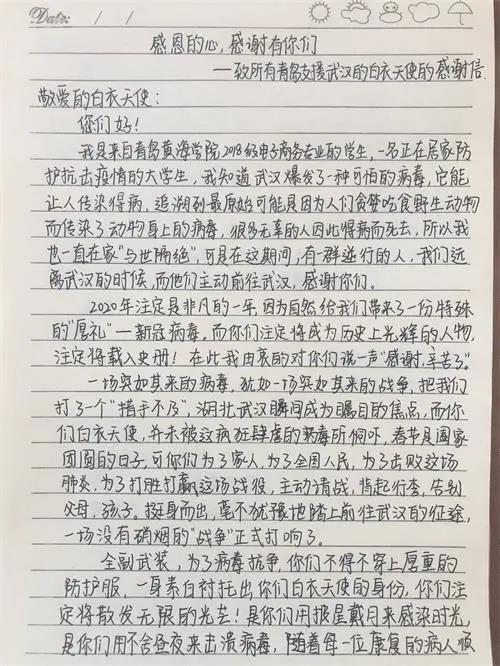 Date: / /
感恩的心，感谢有你们
——致所有青岛支援武汉的白衣天使的感谢信
敬爱的白衣天使：
您们好！
我是来自青岛黄海学院2018级电子商务专业的学生，一名正在居家防
护抗击疫情的大学生，我知道武汉爆发了一种可怕的病毒，它能
让人传染得病，追溯到最原始可能是因为人们贪婪吃食野生动物
而传染了动物身上的病毒，很多无辜的人因此得病而死去，所以我
也一直在家“与世隔绝”，可是在这期间，有一群逆行的人，我们远
离武汉的时候，而他们主动前往武汉，感谢你们。
2020年注定是非凡的一年，因为自然给我们带来了一份特殊
的“厚礼”——新冠病毒，而你们注定将成为历史上光辉的人物，
注定将载入史册！在此我由衷的对你们说一声“感谢，辛苦了”。
一场突如其来的病毒，犹如一场突如其来的战争，把我们
打了一个“措手不及”，湖北武汉瞬间成为瞩目的焦点，而你
们白衣天使，并未被这疯狂肆虐的病毒所恫吓，春节是阖家
团圆的日子，可你们为了家人，为了全国人民，为了击败这场
肺炎，为了打胜打赢这场战役，主动请战，背起行李，告别
父母，孩子。挺身而出，毫不犹豫地踏上前往武汉的征途，
一场没有硝烟的“战争”正式打响了。
全副武装，为了病毒抗争，你们不得不穿上厚重的
防护服，一身素白衬托出你们白衣天使的身份，你们注
定将散发无限的光芒！是你们用披星戴月来感染时光，
是你们用不舍昼夜来击溃病毒，随着每一位康复的病人顺